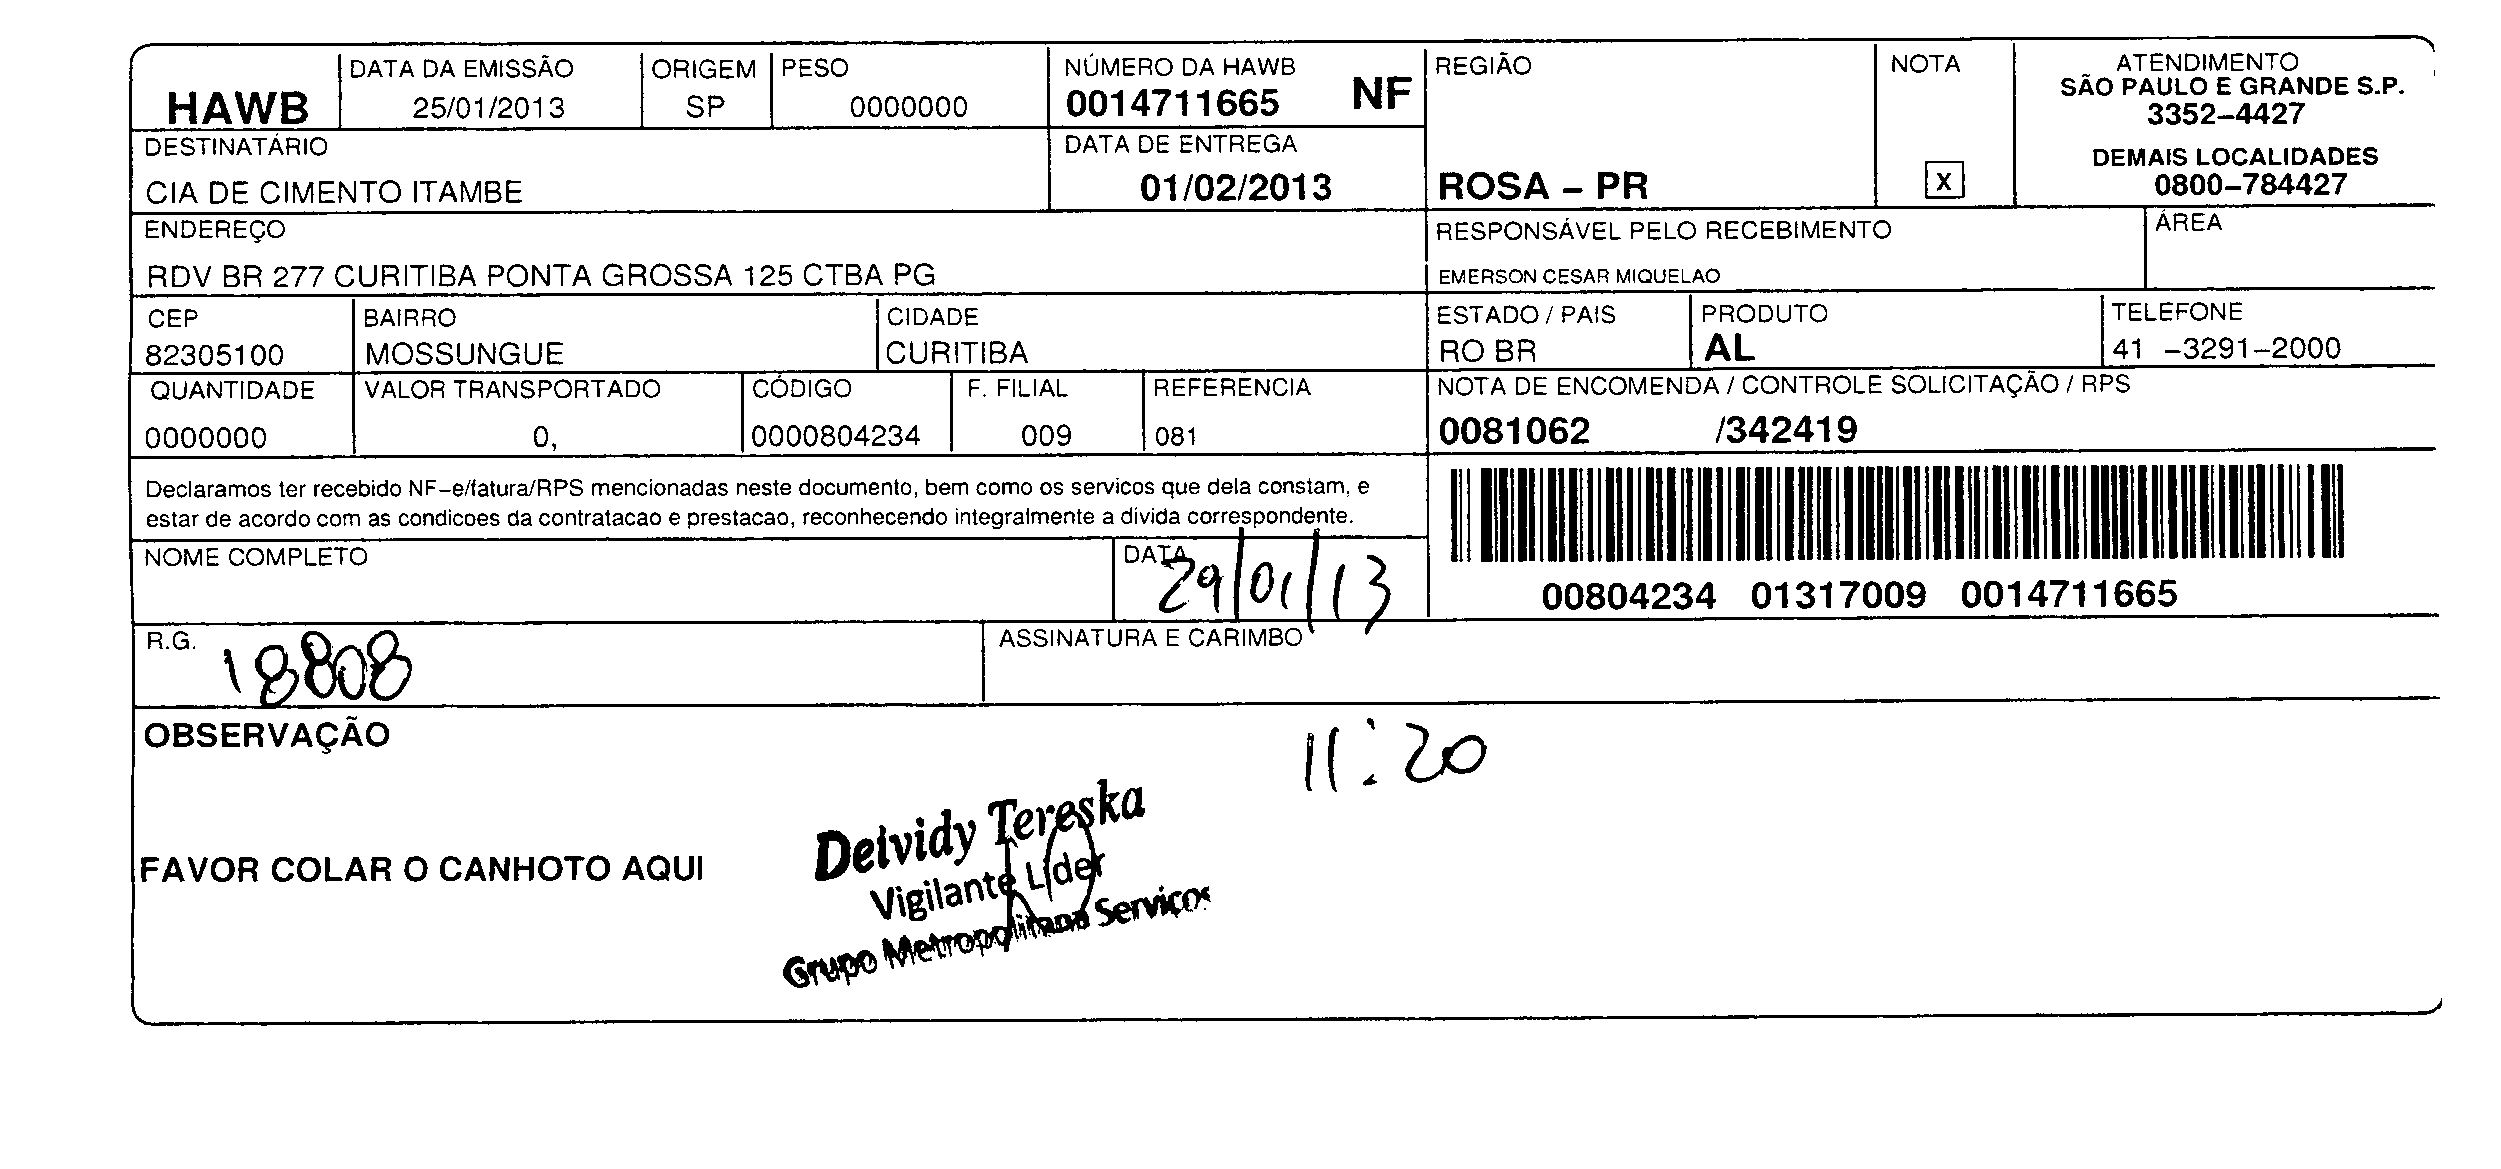 HAWB
DATA DA EMISSÃO
25/01/2013
ORIGEM
SP
PESO
0000000
NÚMERO DA HAWB
0014711665 NF
REGIÃO
ROSA – PR
NOTA
X
ATENDIMENTO
SÃO PAULO E GRANDE S.P.
3352–4427
DEMAIS LOCALIDADES
0800–784427
DESTINATÁRIO
CIA DE CIMENTO ITAMBE
DATA DE ENTREGA
01/02/2013
ENDEREÇO
RDV BR 277 CURITIBA PONTA GROSSA 125 CTBA PG
RESPONSÁVEL PELO RECEBIMENTO
EMERSON CESAR MIQUELAO
ÁREA
CEP
82305100
BAIRRO
MOSSUNGUE
CIDADE
CURITIBA
ESTADO / PAIS
RO BR
PRODUTO
AL
TELEFONE
41 –3291–2000
QUANTIDADE
0000000
VALOR TRANSPORTADO
0,
CÓDIGO
0000804234
F. FILIAL
009
REFERÊNCIA
081
NOTA DE ENCOMENDA / CONTROLE SOLICITAÇÃO / RPS
0081062 /342419
Declaramos ter recebido NF–e/fatura/RPS mencionadas neste documento, bem como os servicos que dela constam, e
estar de acordo com as condicoes da contratacao e prestacao, reconhecendo integralmente a divida correspondente.
00804234 01317009 0014711665
NOME COMPLETO
DATA
29/01/13
R.G.
18808
ASSINATURA E CARIMBO
OBSERVAÇÃO
11:20
FAVOR COLAR O CANHOTO AQUI
Delvidy Tereska
Vigilante Líder
Grupo Metropolitana Serviços